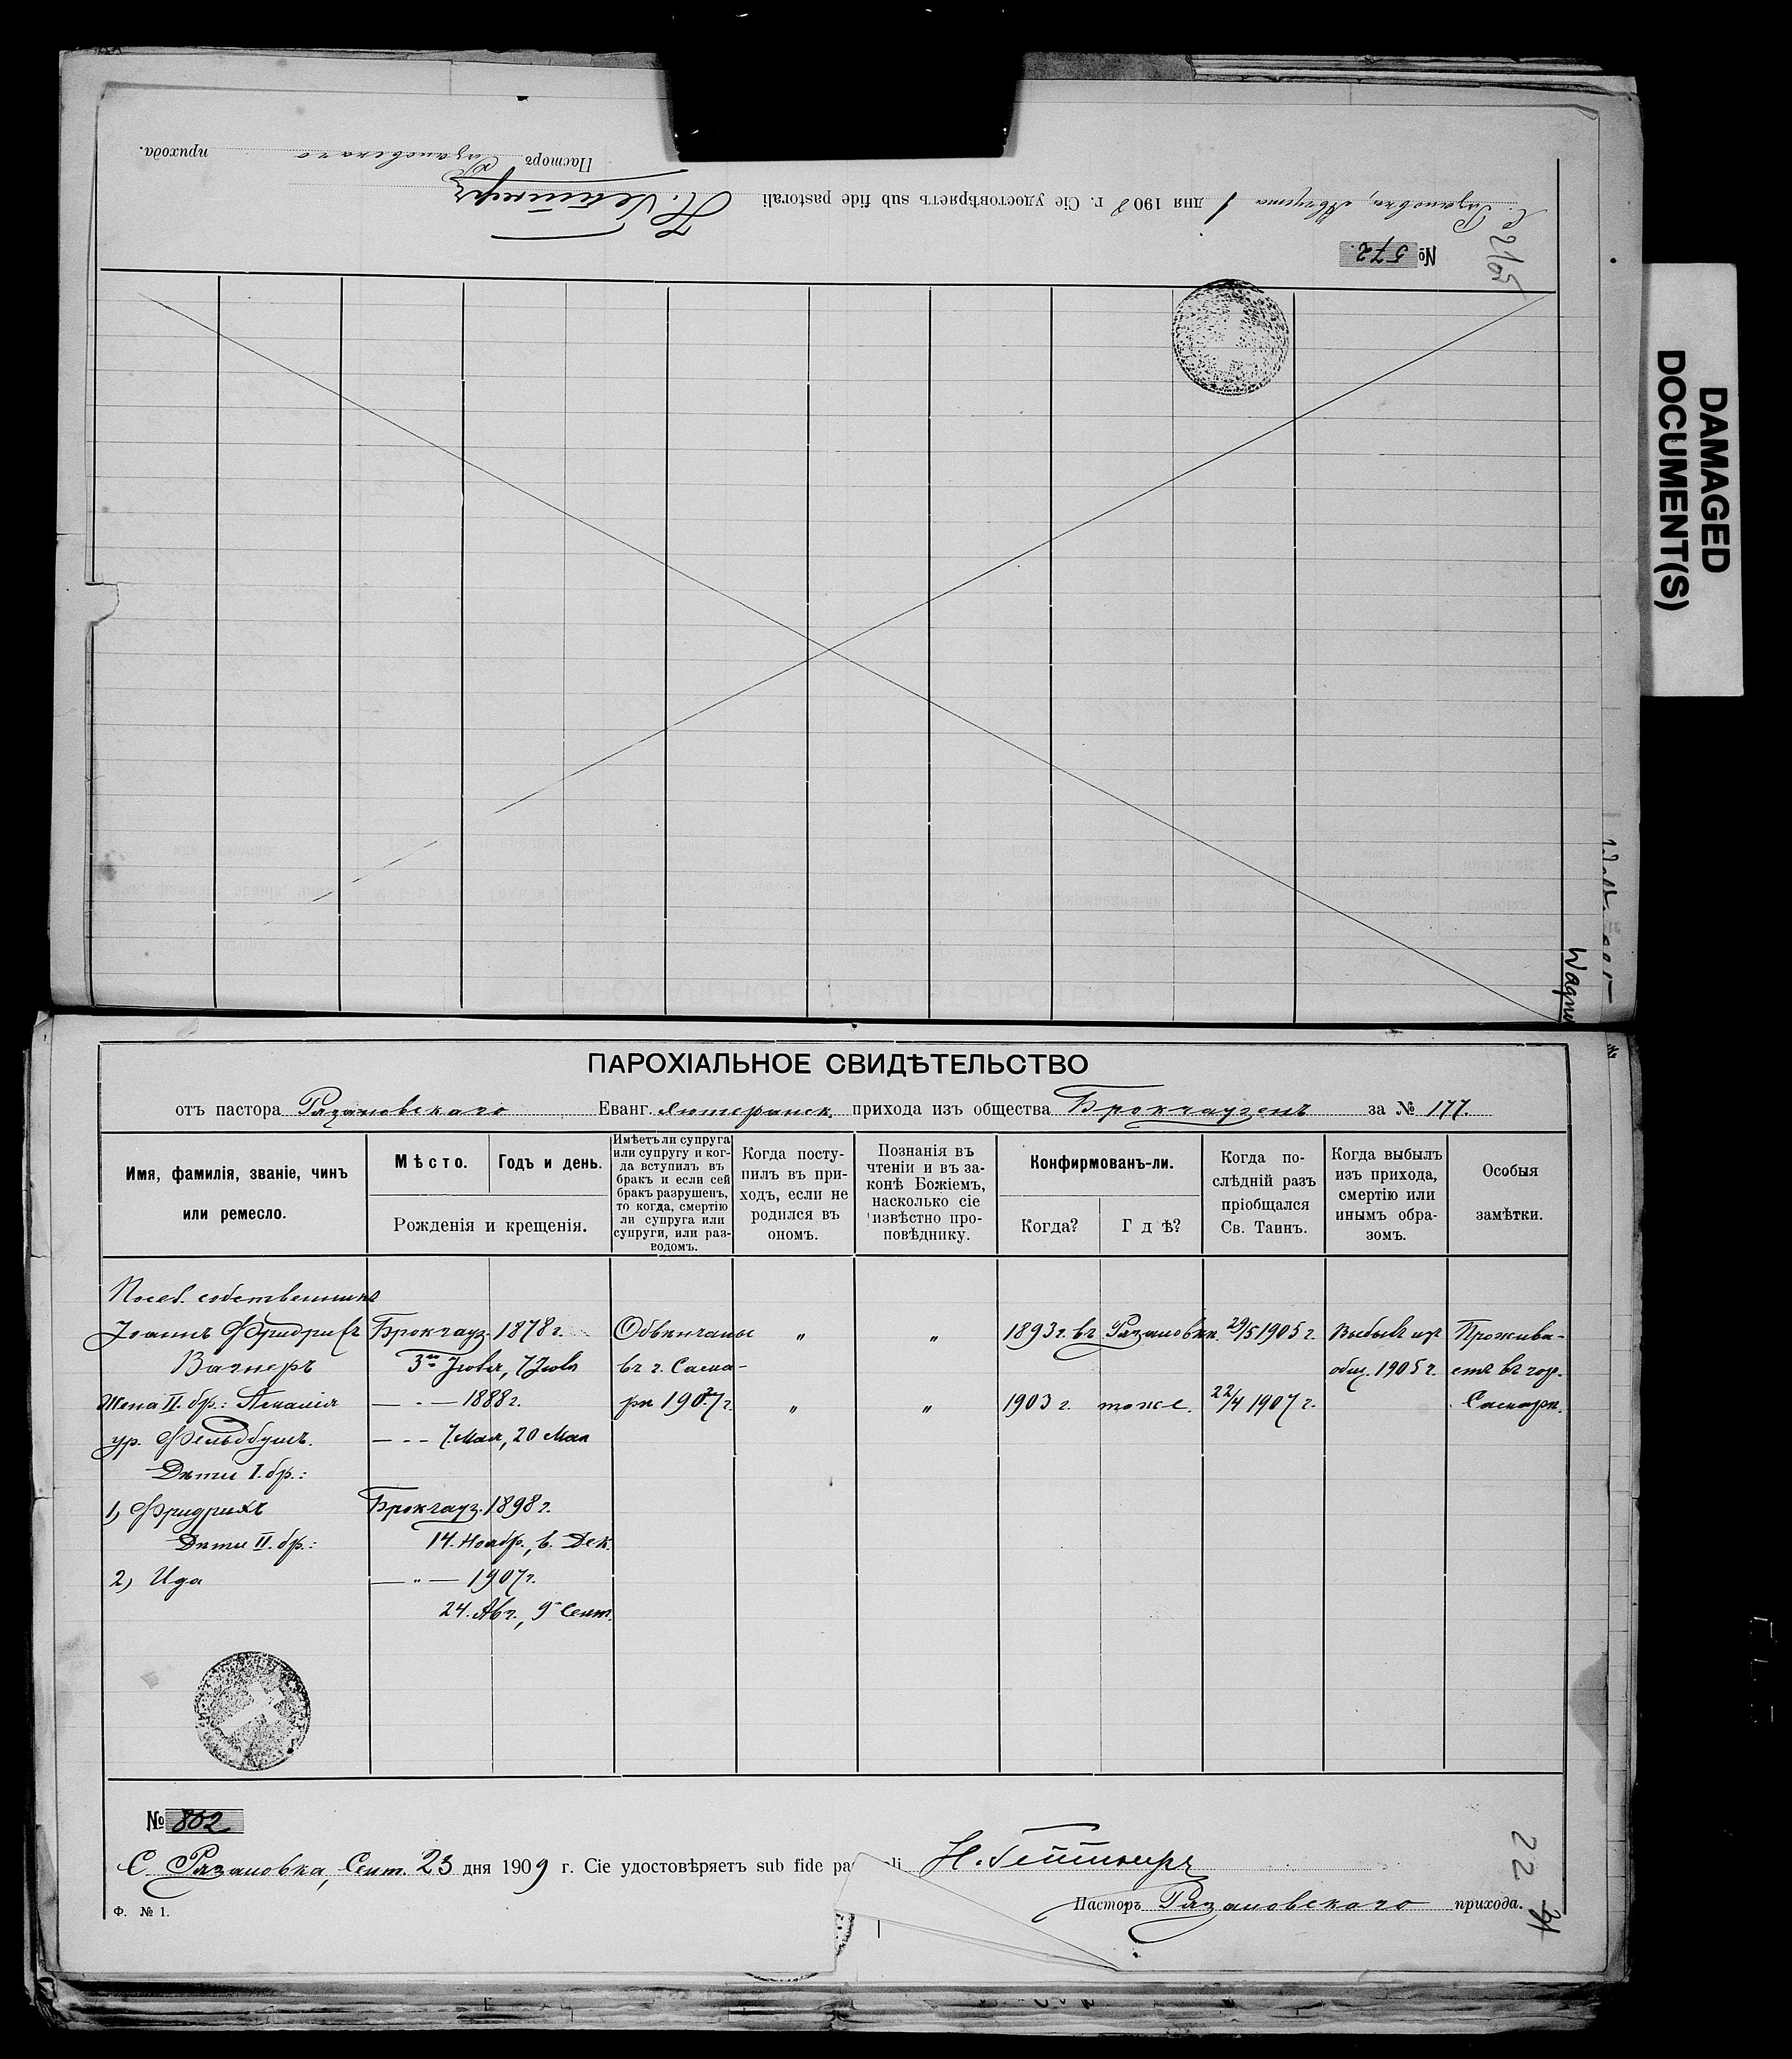 прихода.
Пасторъ Рязановскаго
С. Рязановка, Августа 1 дня 1908 г. Сіе удостовѣряетъ sub fide pastorali
№ 572.
2105
DAMAGED
DOCUMENT(S)
Wagner
ПАРОХІАЛЬНОЕ СВИДѢТЕЛЬСТВО
отъ пастора Рязановскаго Еванг. Лютеранск. прихода изъ общества Брокгаузенъ за № 177.
Имя, фамилія, званіе, чинъ
или ремесло.
Мѣсто.
Годъ и день.
Рожденія и крещенія.
Имѣетъ ли супруга
или супругу и ког-
да вступилъ въ
бракъ и если сей
бракъ разрушенъ,
то когда, смертію
ли супруга или
супруги, или раз-
водомъ.
Когда посту-
пилъ въ при-
ходъ, если не
родился въ
ономъ.
Познанія въ
чтеніи и въ за-
конѣ Божіемъ,
насколько сіе
извѣстно про-
повѣднику.
Конфирмованъ-ли.
Когда?
Гдѣ?
Когда по-
слѣдній разъ
пріобщался
Св. Таинъ.
Когда выбылъ
изъ прихода,
смертію или
инымъ обра-
зомъ.
Особыя
замѣтки.
Посел. собственникъ
Іоаннъ Фридрихъ Брокгауз. 1878 г. Обвѣнчаны " " 1893 г. въ Рязановкѣ. 29/5 1905 г. Выбылъ изъ Прожива-
Вагнеръ 3го Іюля, 7 Іюля въ г. Сама- общ. 1905 г. етъ въ гор.
Жена II. бр.: Аталія — " — 1888 г. рѣ 1907 г. " " 1903 г. тоже. 22/4 1907 г. Самарѣ.
ур. Фельдбушъ. — " — 7. Мая, 20 Мая
Дѣти I. бр.:
1) Фридрихъ Брокгауз. 1898 г.
Дѣти II. бр.: 14. Ноябр., 6. Дек.
2) Ида — " — 1907 г.
24. Авг., 9 Сент.
№ 802
С. Рязановка, Сент. 23 дня 1909 г. Сіе удостовѣряетъ sub fide pa li
Пасторъ Рязановскаго прихода.
Ф. № 1.
22